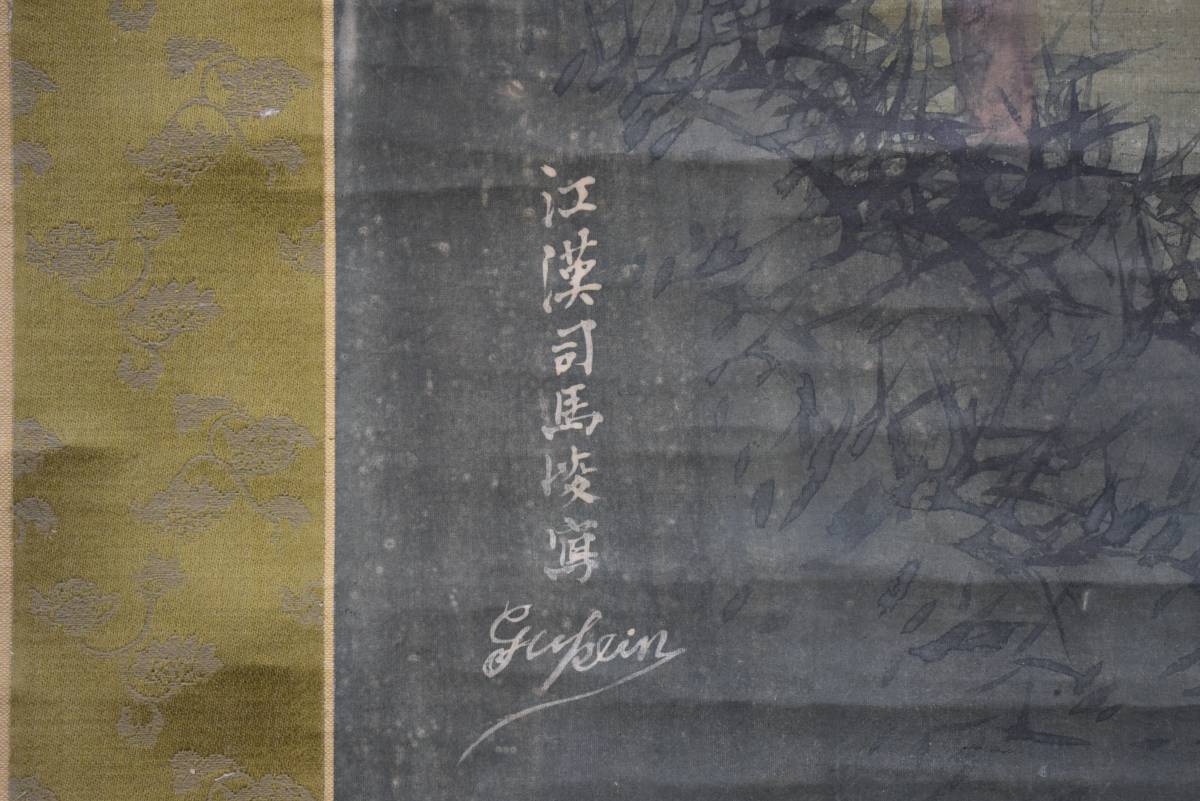 江漢司馬峻寫